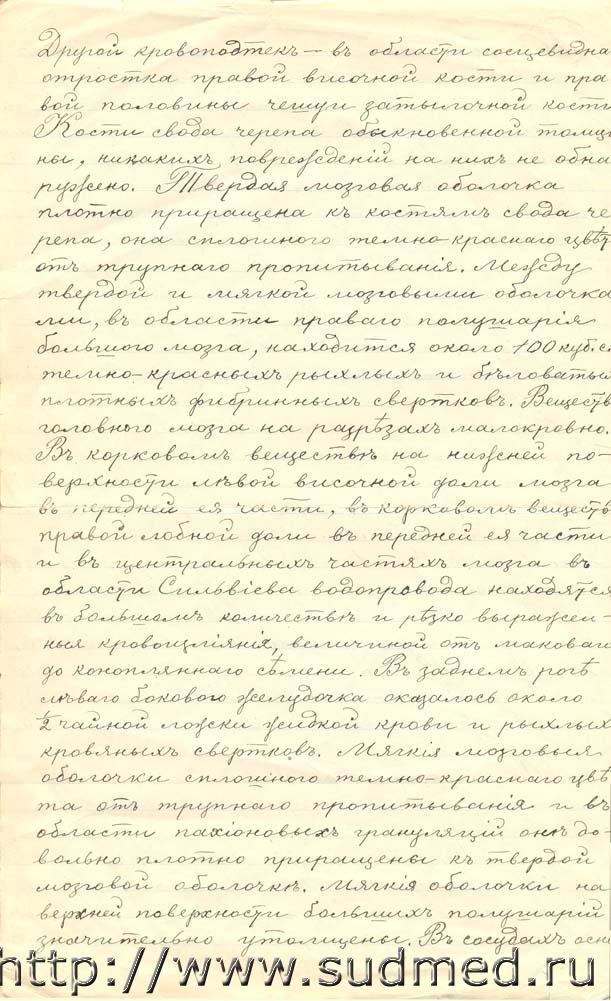 Другой кровоподтекъ — въ области сосцевидна
отростка правой височной кости и пра
вой половины чешуи затылочной кости
Кости свода черепа обыкновенной толщи
ны, никакихъ поврежденій на нихъ не обна
ружено. Твердая мозговая оболочка
плотно приращена къ костямъ свода че
репа, она сплошного темно-краснаго цвѣт
отъ трупнаго пропитыванія. Между
твердой и мягкой мозговыми оболочка
ми, въ области праваго полушарія
большого мозга, находится около 100 куб. с
темно-красныхъ рыхлыхъ и бѣловатых
плотныхъ фибринныхъ свертковъ. Веществ
головного мозга на разрѣзахъ малокровно.
Въ корковомъ веществѣ на нижней по-
верхности лѣвой височной доли мозга
въ передней ея части, въ корковомъ веществѣ
правой лобной доли въ передней ея части
и въ центральныхъ частяхъ мозга въ
области Сильвіева водопровода находятся
въ большомъ количествѣ и рѣзко выражен-
ныя кровоизліянія, величиной отъ маковаго
до конопляннаго сѣмени. Въ заднемъ рогѣ
лѣваго бокового желудочка оказалось около
½ чайной ложки жидкой крови и рыхлых
кровяныхъ свертковъ. Мягкія мозговыя
оболочки сплошного темно-краснаго цвѣ
та отъ трупнаго пропитыванія и въ
области пахіоновыхъ грануляцій онѣ до-
вольно плотно приращены къ твердой
мозговой оболочкѣ. Мягкія оболочки на
верхней поверхности большихъ полушарій
значительно утолщены. Въ сосудахъ осн
http://www.sudmed.ru